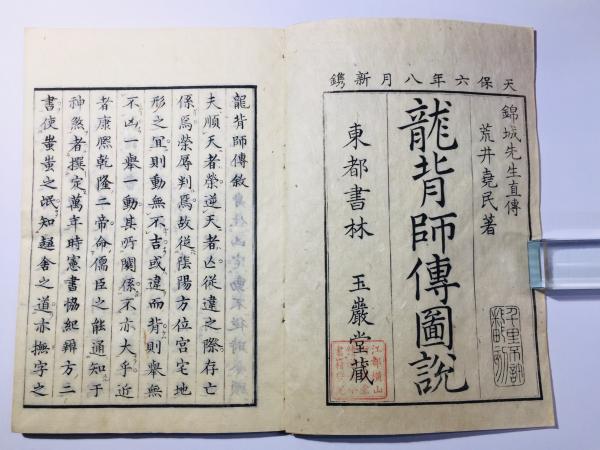 天保六年八月新鐫
錦城先生直傳
荒井堯民著
龍背師傳圖説
東都書林 玉巖堂藏
龍背師傳敘
夫順天者榮逆天者亡從違之際存亡
係焉榮辱判焉故從陰陽方位宮宅地
形之宜則動無不吉或違而背則舉無
不凶一舉一動其所關係不亦大乎近
者康熙乾隆二帝命儒臣之能通知于
神煞者撰定萬年時憲書協紀辨方二
書使蚩蚩之氓知趨舍之道亦撫字之